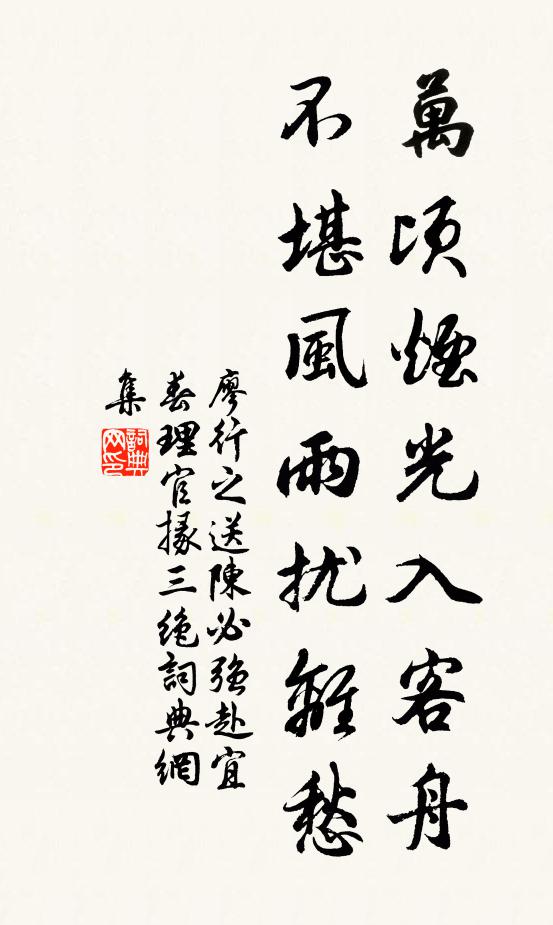 萬頃煙光入客舟
不堪風雨扰離愁
廖行之送陳必强赴宜
春理官掾三絶詞典網
集
詞典网印